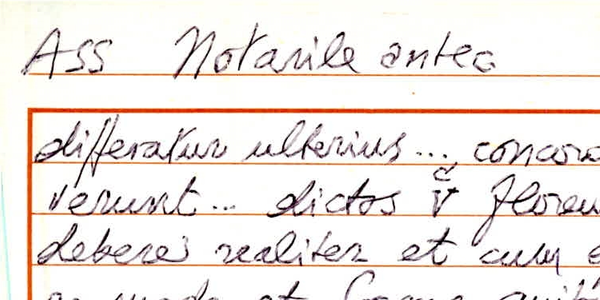 Ass Notarile antea
differatur ulterius... concor
verunt... dictos v c floren
debere realiter et cum e
modo et forma